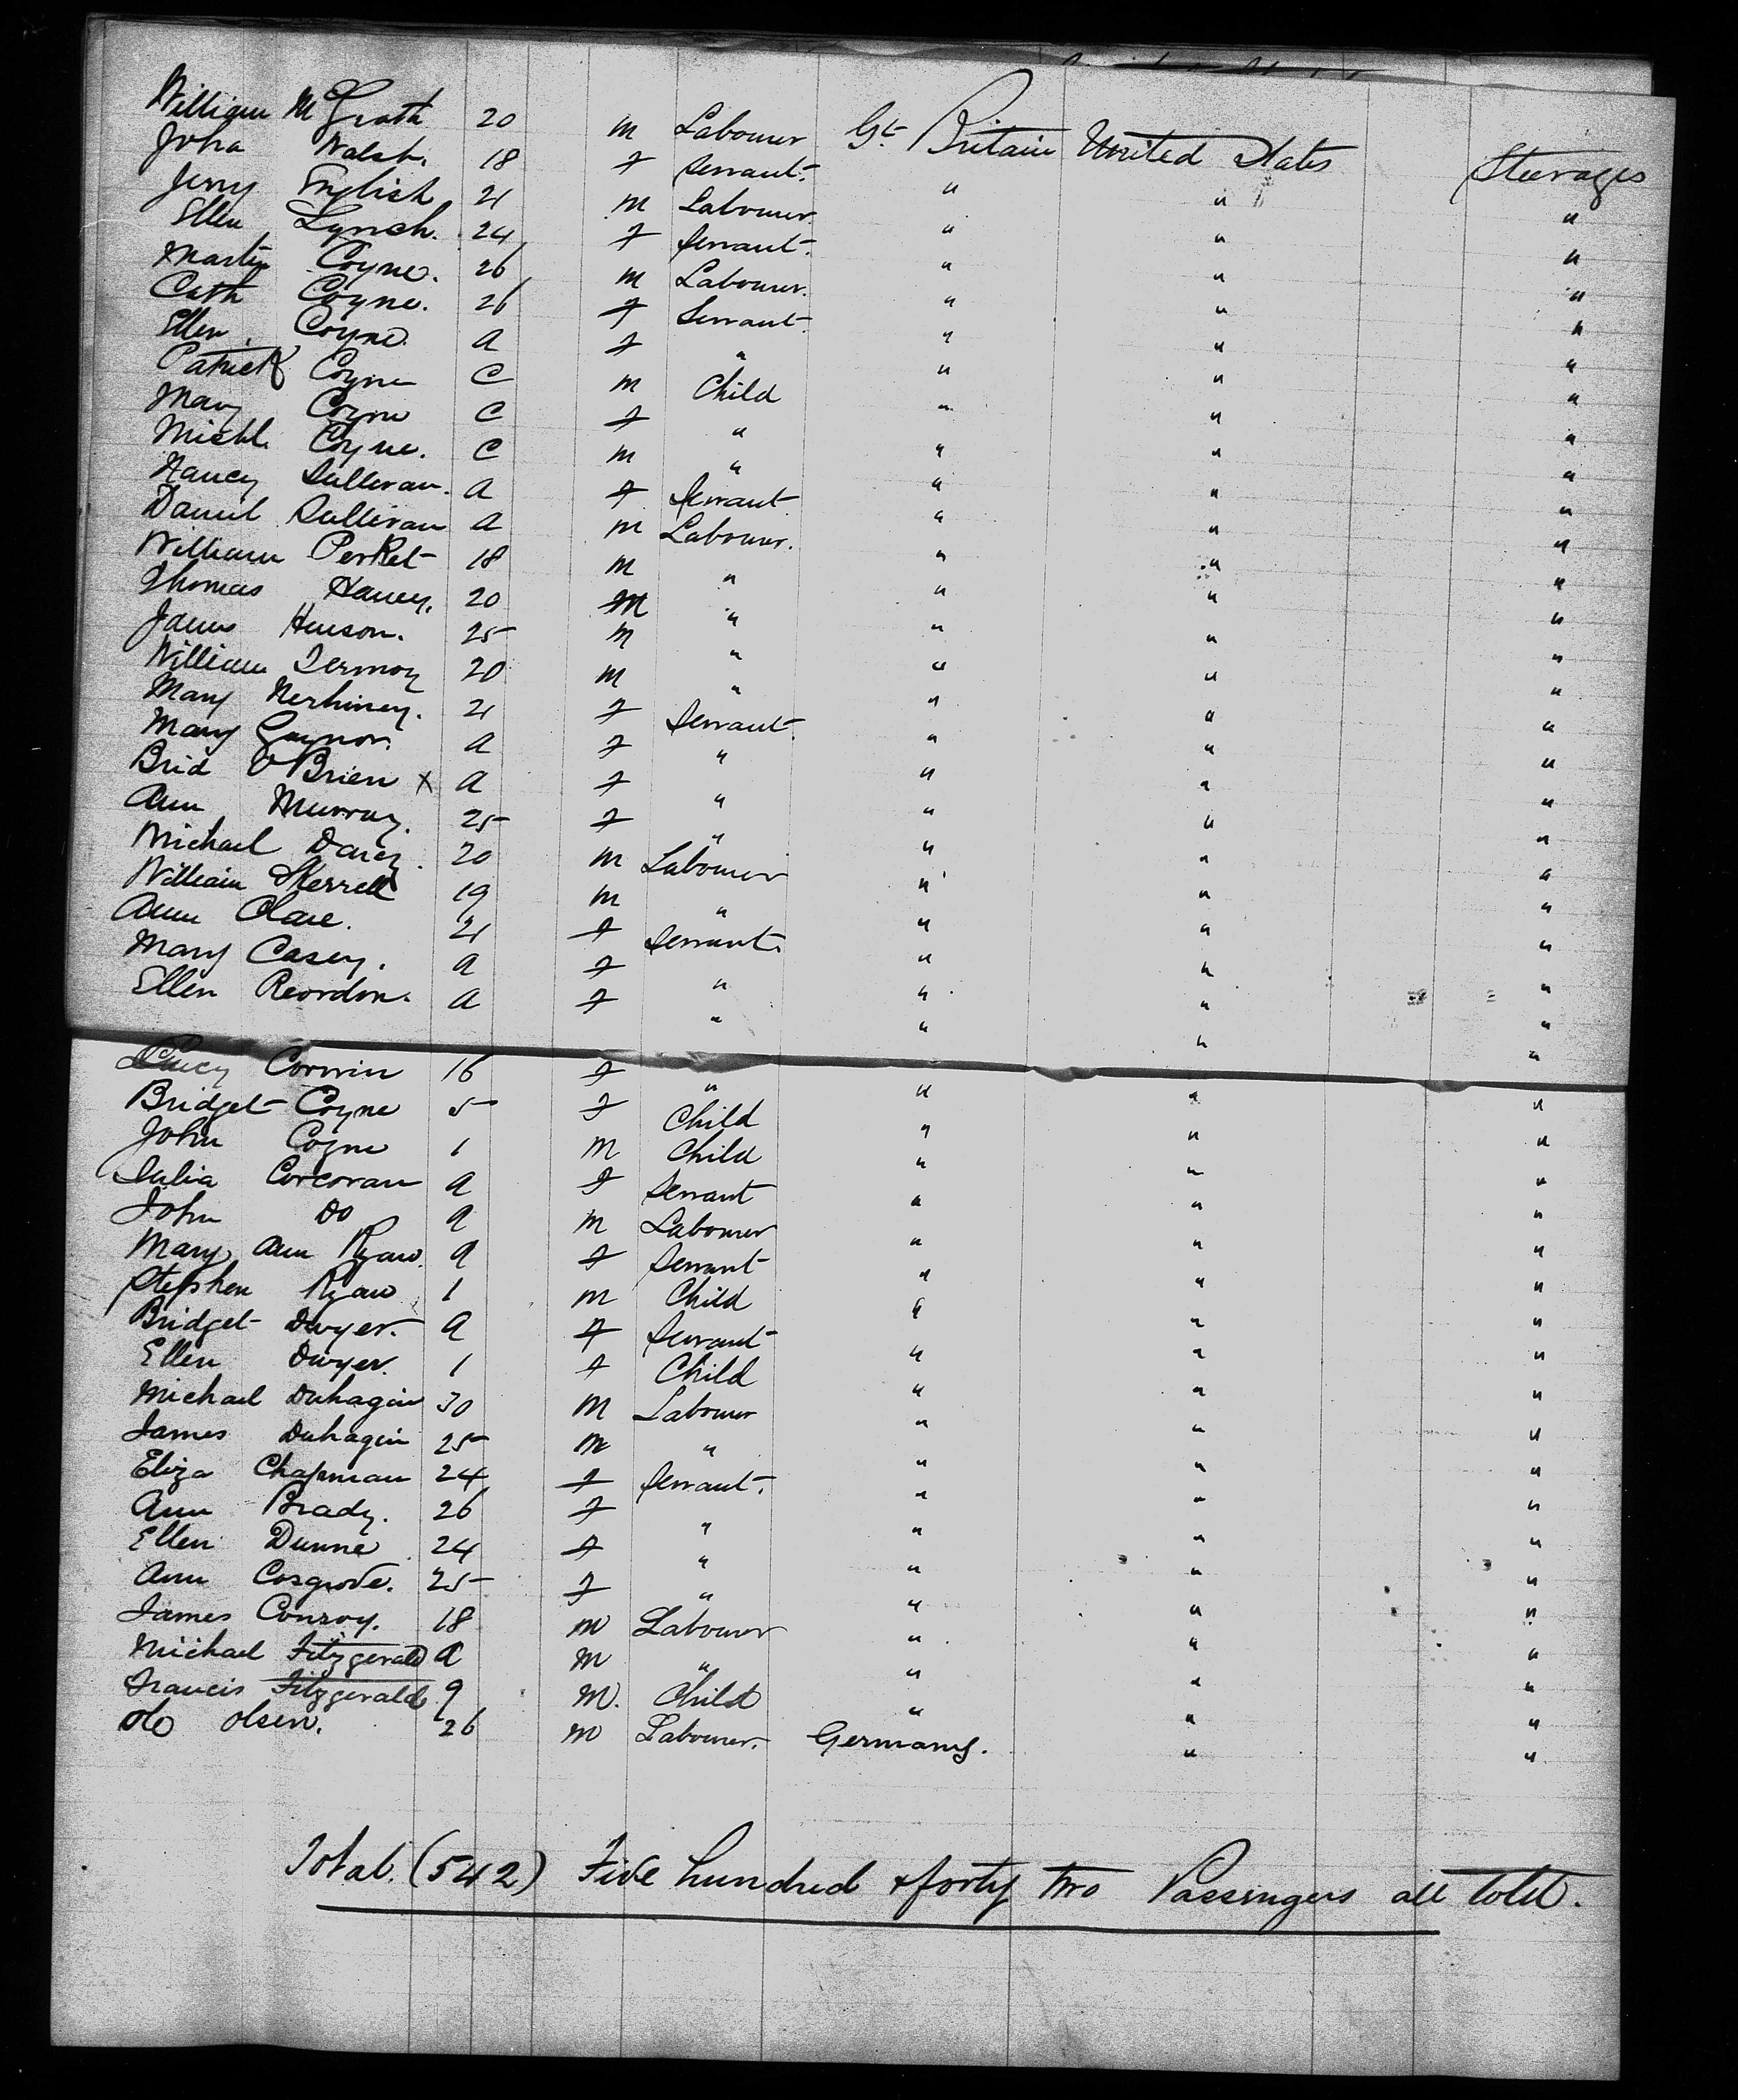 William McGrath 20 m Labourer Gt. Britain United States Steerages
Joha Walsh. 18 f Servant. " " "
Jerry English 21 m Labourer " " "
Ellen Lynch. 24 f Servant. " " "
Martin Coyne. 26 m Labourer. " " "
Cath Coyne. 26 f Servant. " " "
Ellen Coyne. a f " " " "
Patrick Coyne C m Child " " "
Mary Coyne C f " " " "
Michl. Coyne. C m " " " "
Nancy Sullivan. a f Servant. " " "
Daniel Sullivan a m Labourer. " " "
William Perket 18 m " " " "
Thomas Haney. 20 m " " " "
James Henson. 25 m " " " "
William Dermoy 20 m " " " "
Mary Nerhiney. 21 f Servant. " " "
Mary Gaynor. a f " " " "
Brid O'Brien x a f " " " "
Ann Murray. 25 f " " " "
Michael Darcy. 20 m Labourer " " "
William Skerrett 19 m " " " "
Ann Clare. 21 f Servant. " " "
Mary Casey. a f " " " "
Ellen Reordon. a f " " " "
Lucy Corwin 16 f " " " "
Bridget Coyne 5 f Child " " "
John Coyne 1 m Child " " "
Julia Corcoran a f Servant " " "
John Do a m Labourer " " "
Mary Ann Ryan. a f Servant " " "
Stephen Ryan 1 m Child " " "
Bridget Dwyer. a f Servant " " "
Ellen Dwyer. 1 f Child " " "
Michael Duhagin 30 m Labourer " " "
James Duhagin 25 m " " " "
Eliza Chapman 24 f Servant. " " "
Ann Brady. 26 f " " " "
Ellen Dunne 24 f " " " "
Ann Cosgrove. 25 f " " " "
James Conroy. 18 m Labourer " " "
Michael Fitzgerald a m " " " "
Francis Fitzgerald 9 m. Child " " "
Ole Olsen. 26 m Labourer. Germany. " "
Total. (542) Five hundred & forty two Passengers all told.